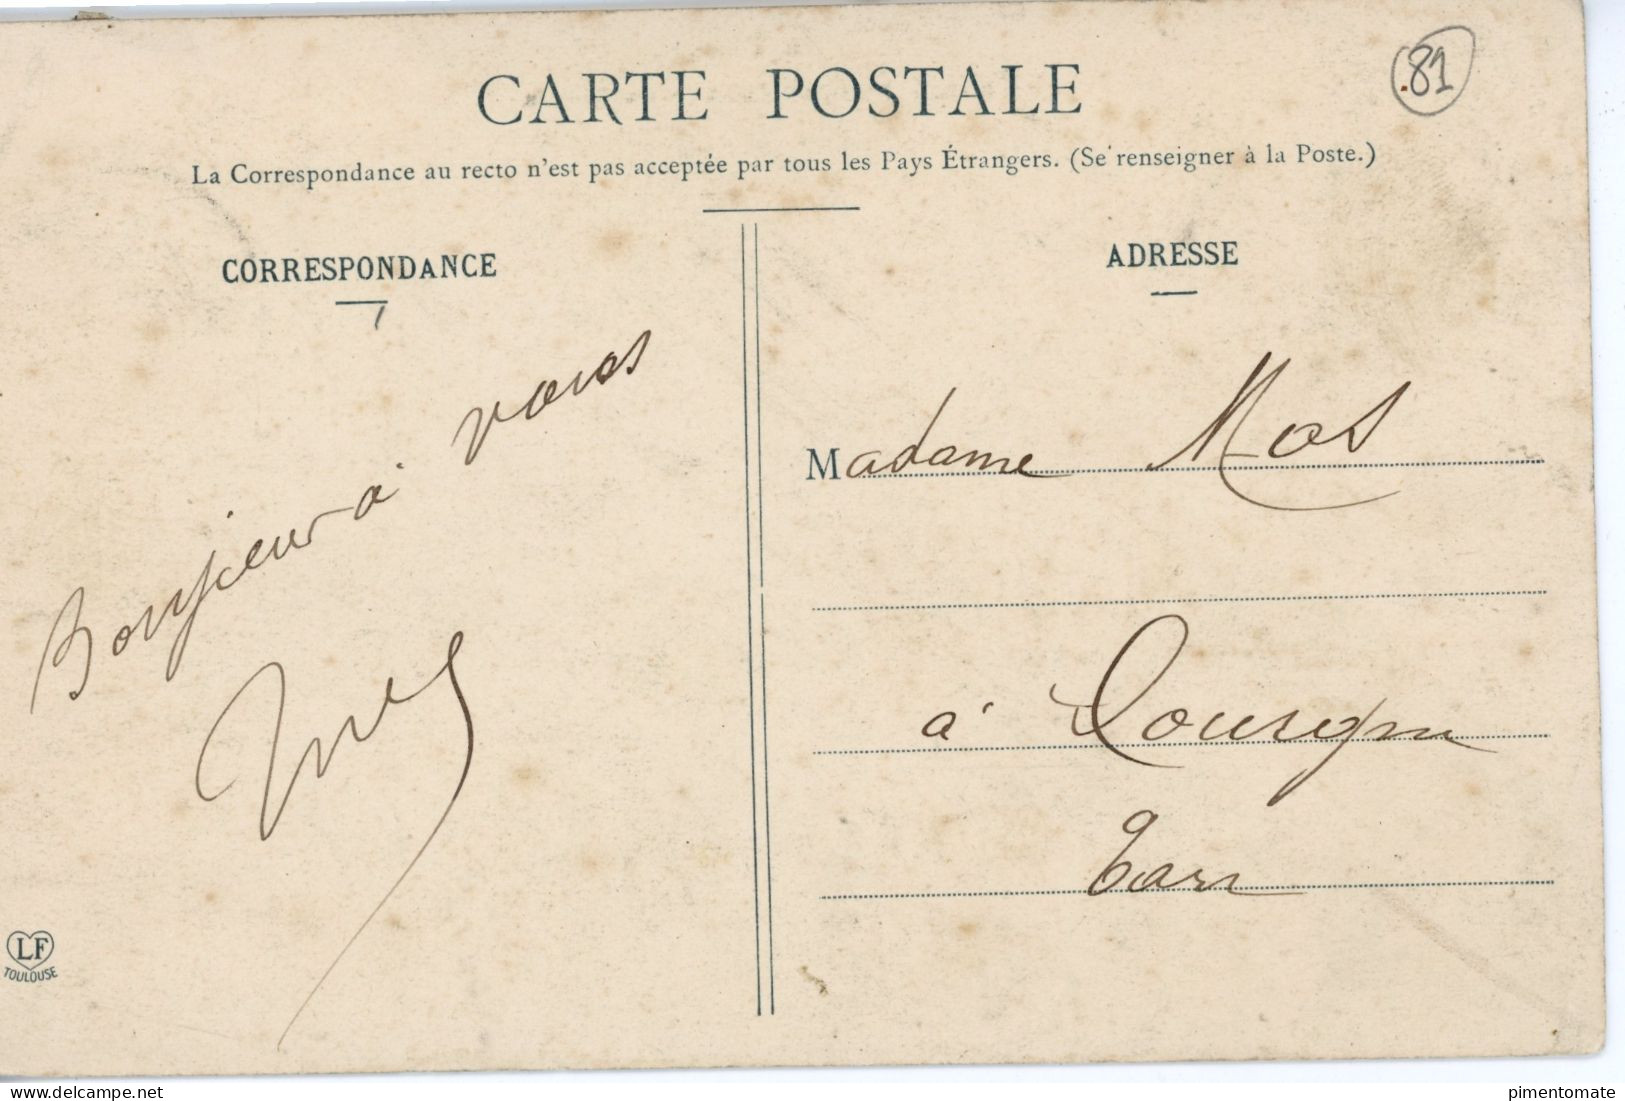 81
CARTE POSTALE
La Correspondance au recto n'est pas acceptée par tous les Pays Étrangers. (Se renseigner à la Poste.)
CORRESPONDANCE
ADRESSE
Bonjour à vous
Madame Mos
à
Tarn
LF
TOULOUSE
www.delcampe.net
pimentomate